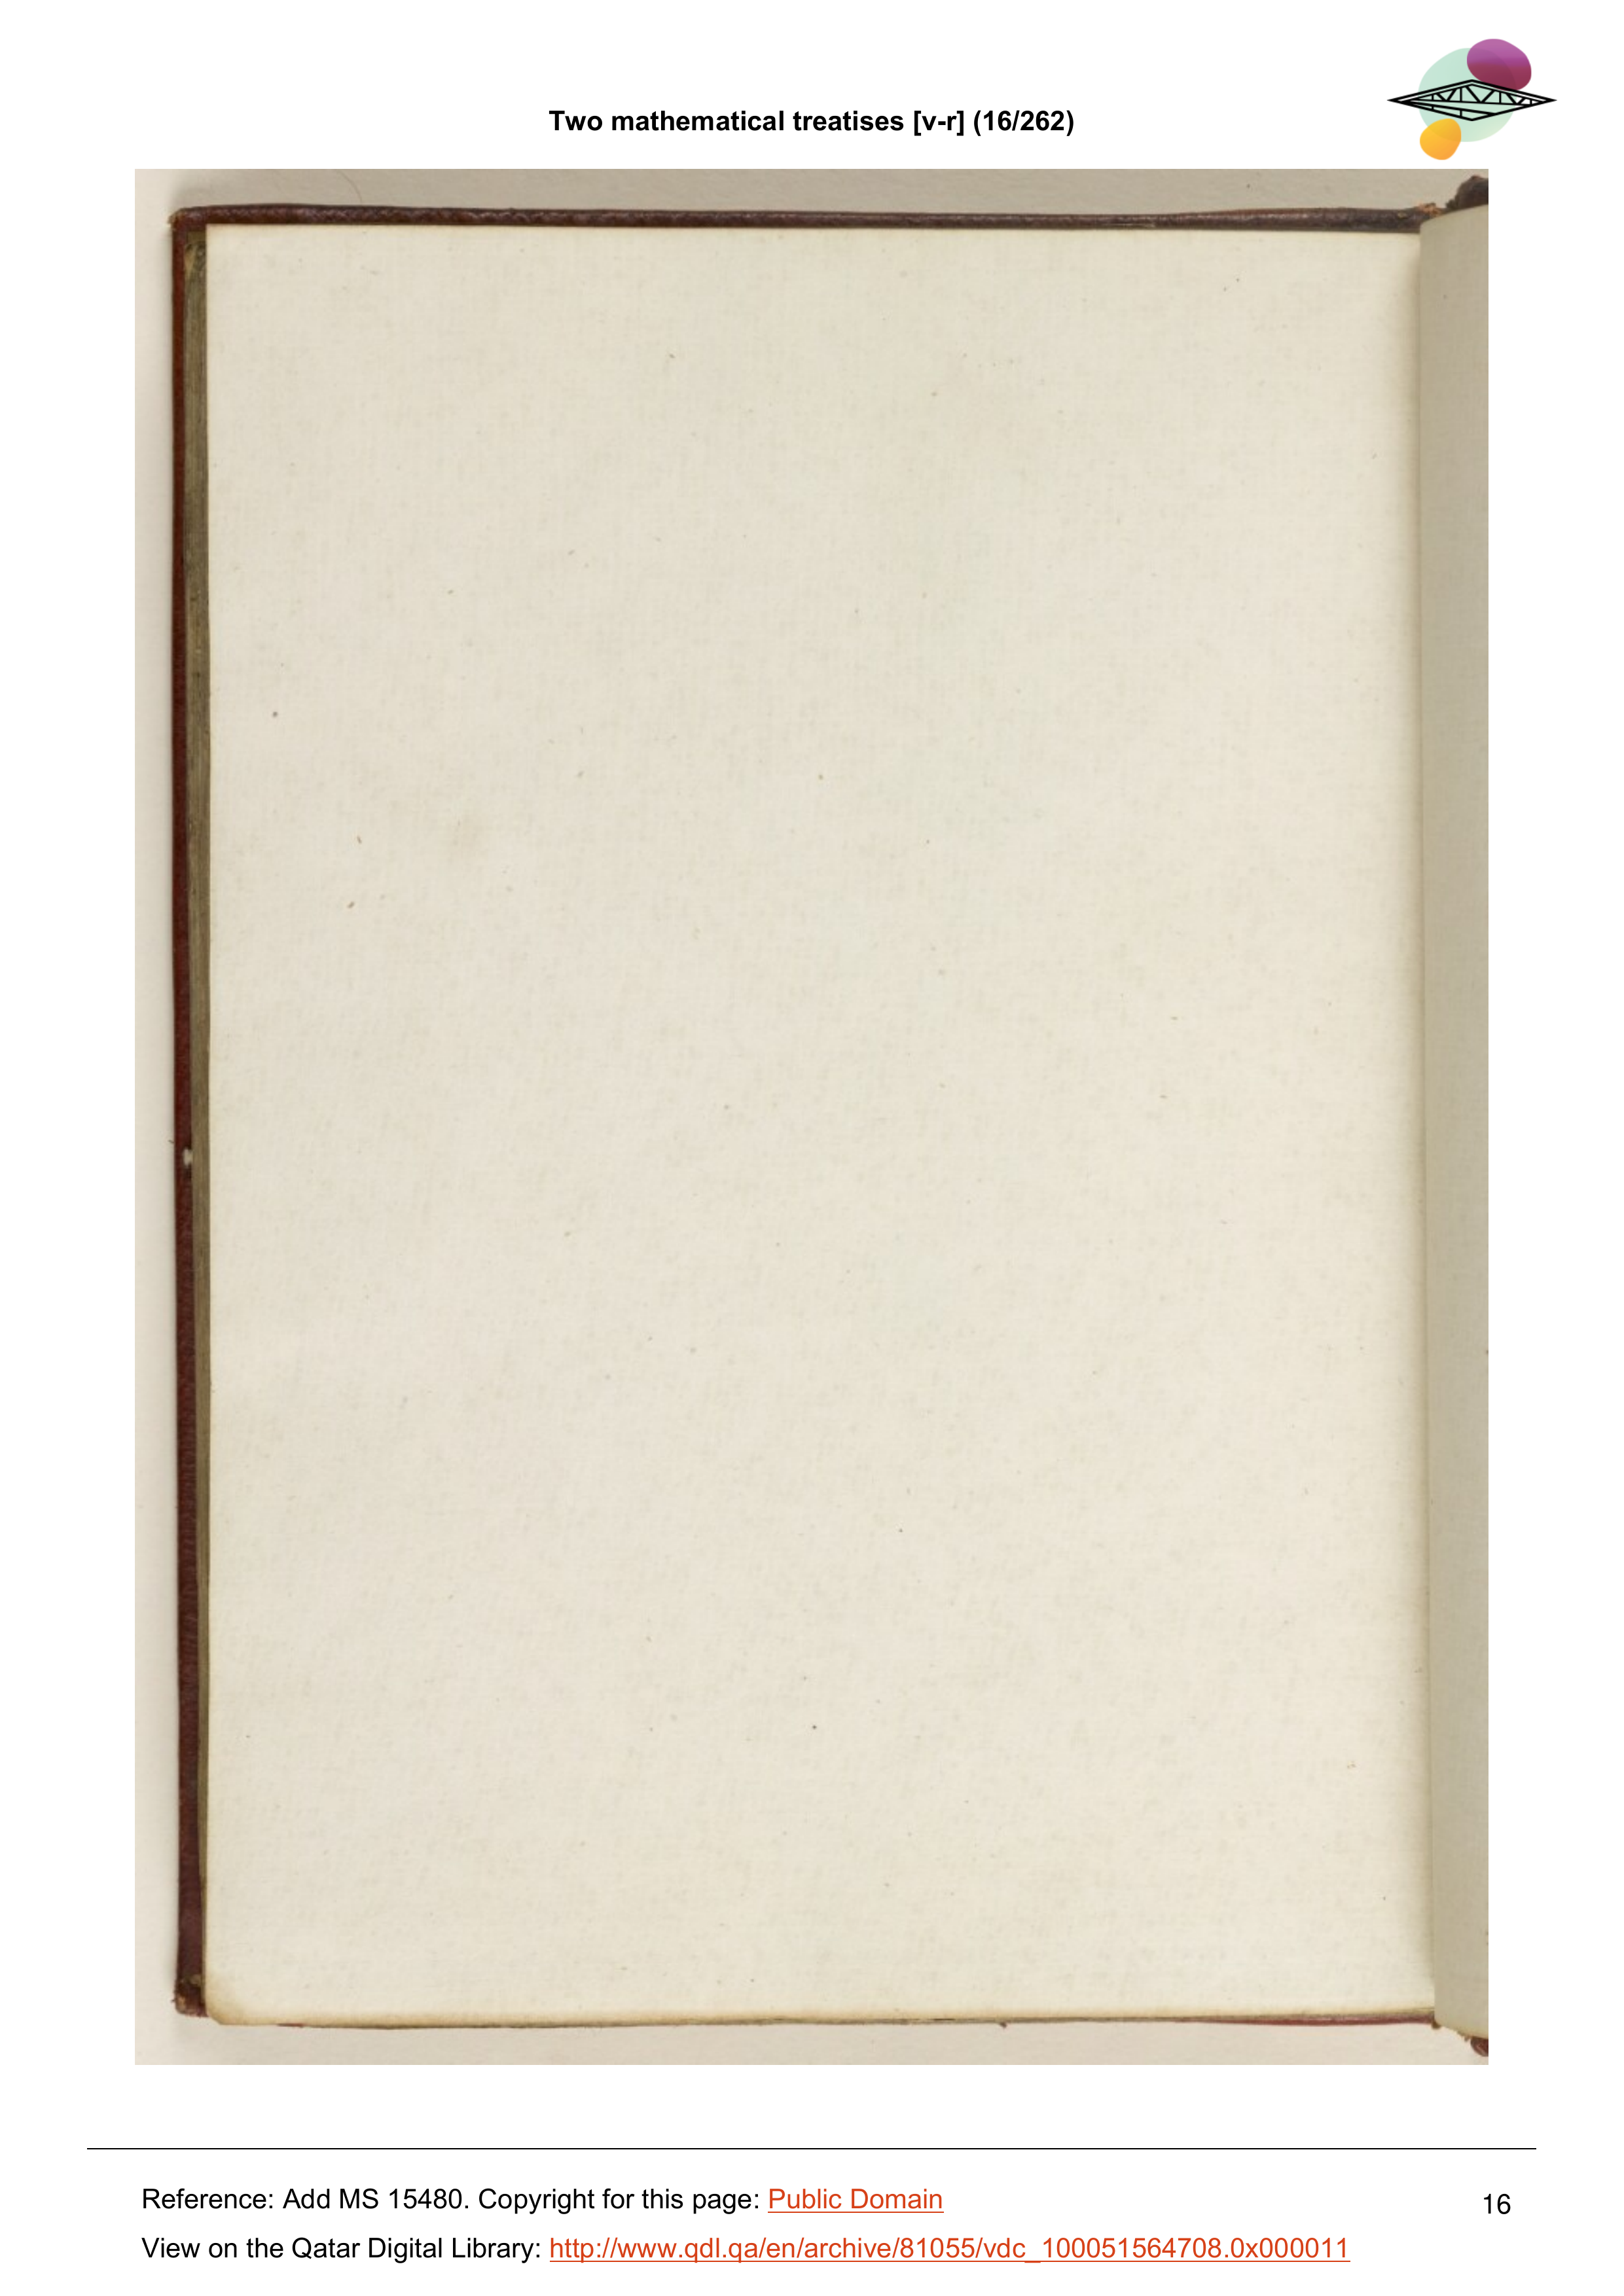 Two mathematical treatises [v-r] (16/262)
Reference: Add MS 15480. Copyright for this page: Public Domain
16
View on the Qatar Digital Library: http://www.qdl.qa/en/archive/81055/vdc_100051564708.0x000011